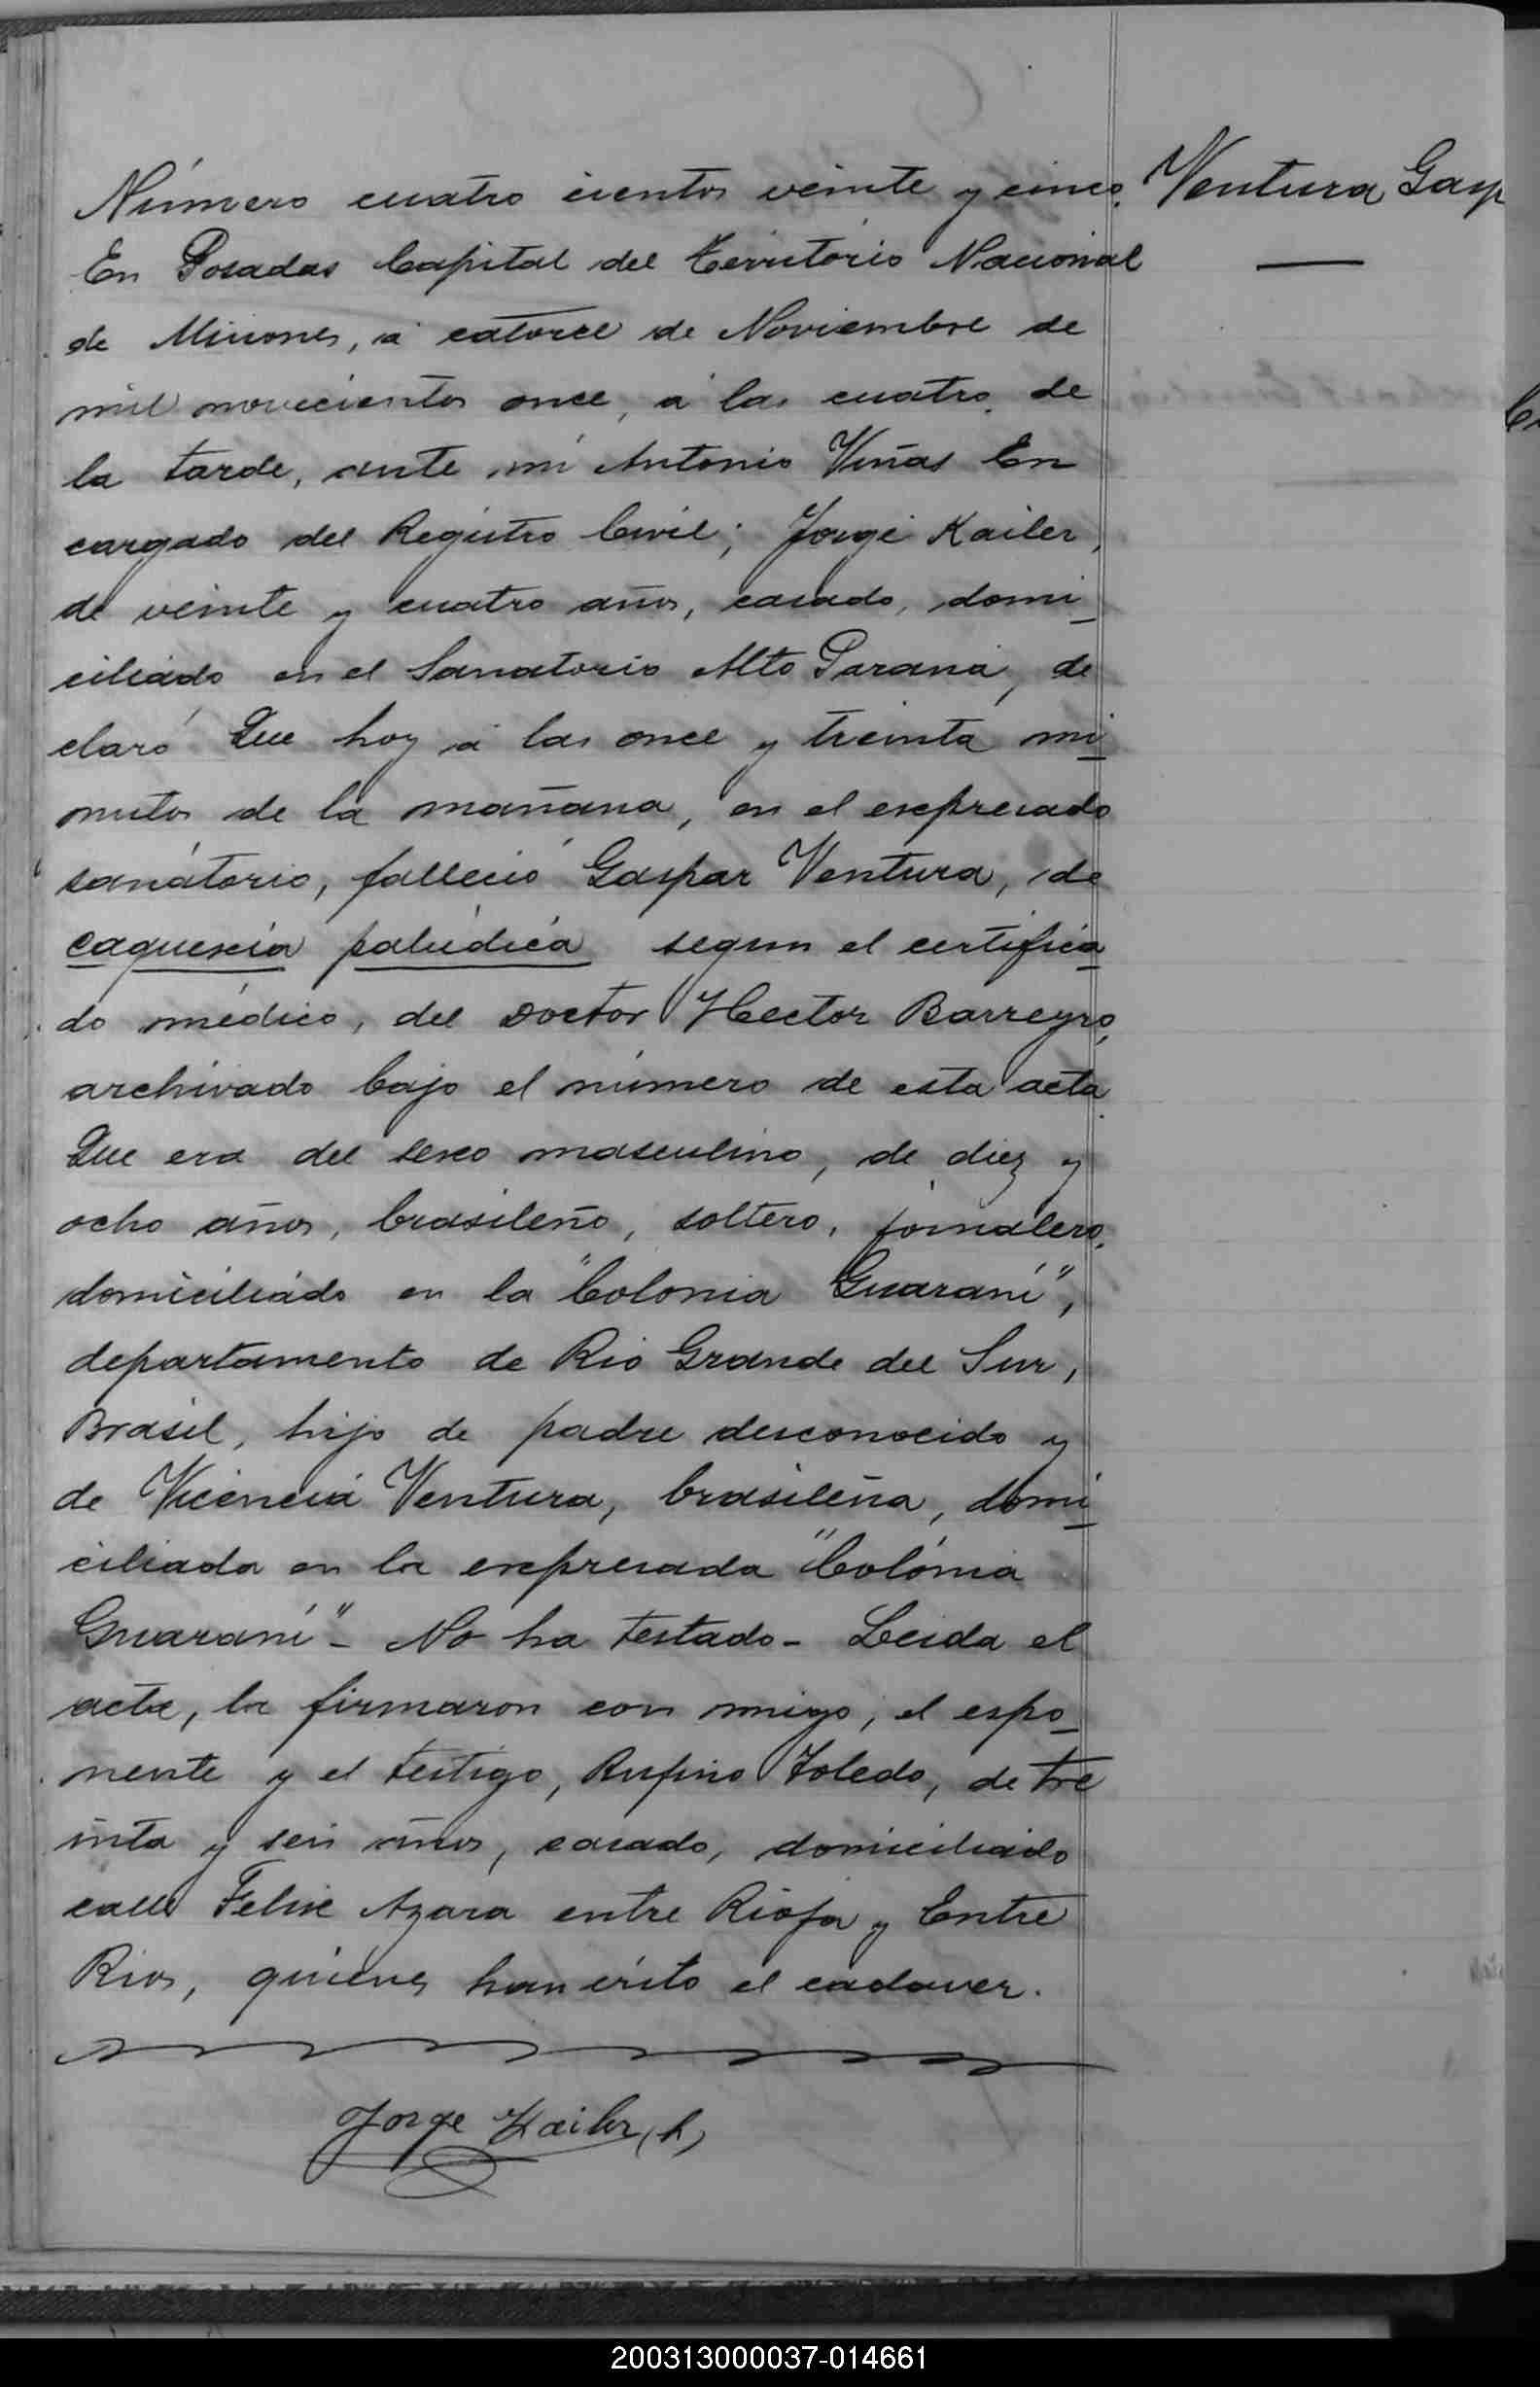 Número cuatro cientos veinte y cinco.
Ventura Gasp
En Posadas Capital del Territorio Nacional
de Misiones, á catorce de Noviembre de
mil novecientos once, á las cuatro de
la tarde, ante mi Antonio Viñas En
cargado del Registro Civil; Jorge Kailer,
de veinte y cuatro años, casado, domi
ciliado en el Sanatorio Alto Paraná, de
claró Que hoy á las once y treinta mi
nutos de la mañana, en el expresado
sanatorio, falleció Gaspar Ventura, de
caquexia palúdica segun el certifica
do médico, del Doctor Hector Barreyro,
archivado bajo el número de esta acta.
Que era del sexo masculino, de diez y
ocho años, brasileño, soltero, jornalero,
domiciliado en la "Colonia Guaraní",
departamento de Rio Grande del Sur,
Brasil, hijo de padre desconocido y
de Vicencia Ventura, brasileña, domi
ciliada en la expresada "Colonia
Guaraní" - No ha testado - Leida el
acta, la firmaron con migo, el espo
nente y el testigo, Rufino Toledo, de tre
inta y seis años, casado, domiciliado
calle Felix Azara entre Rioja y Entre
Rios, quienes han visto el cadaver.
Jorge Kailer (h)
200313000037-014661